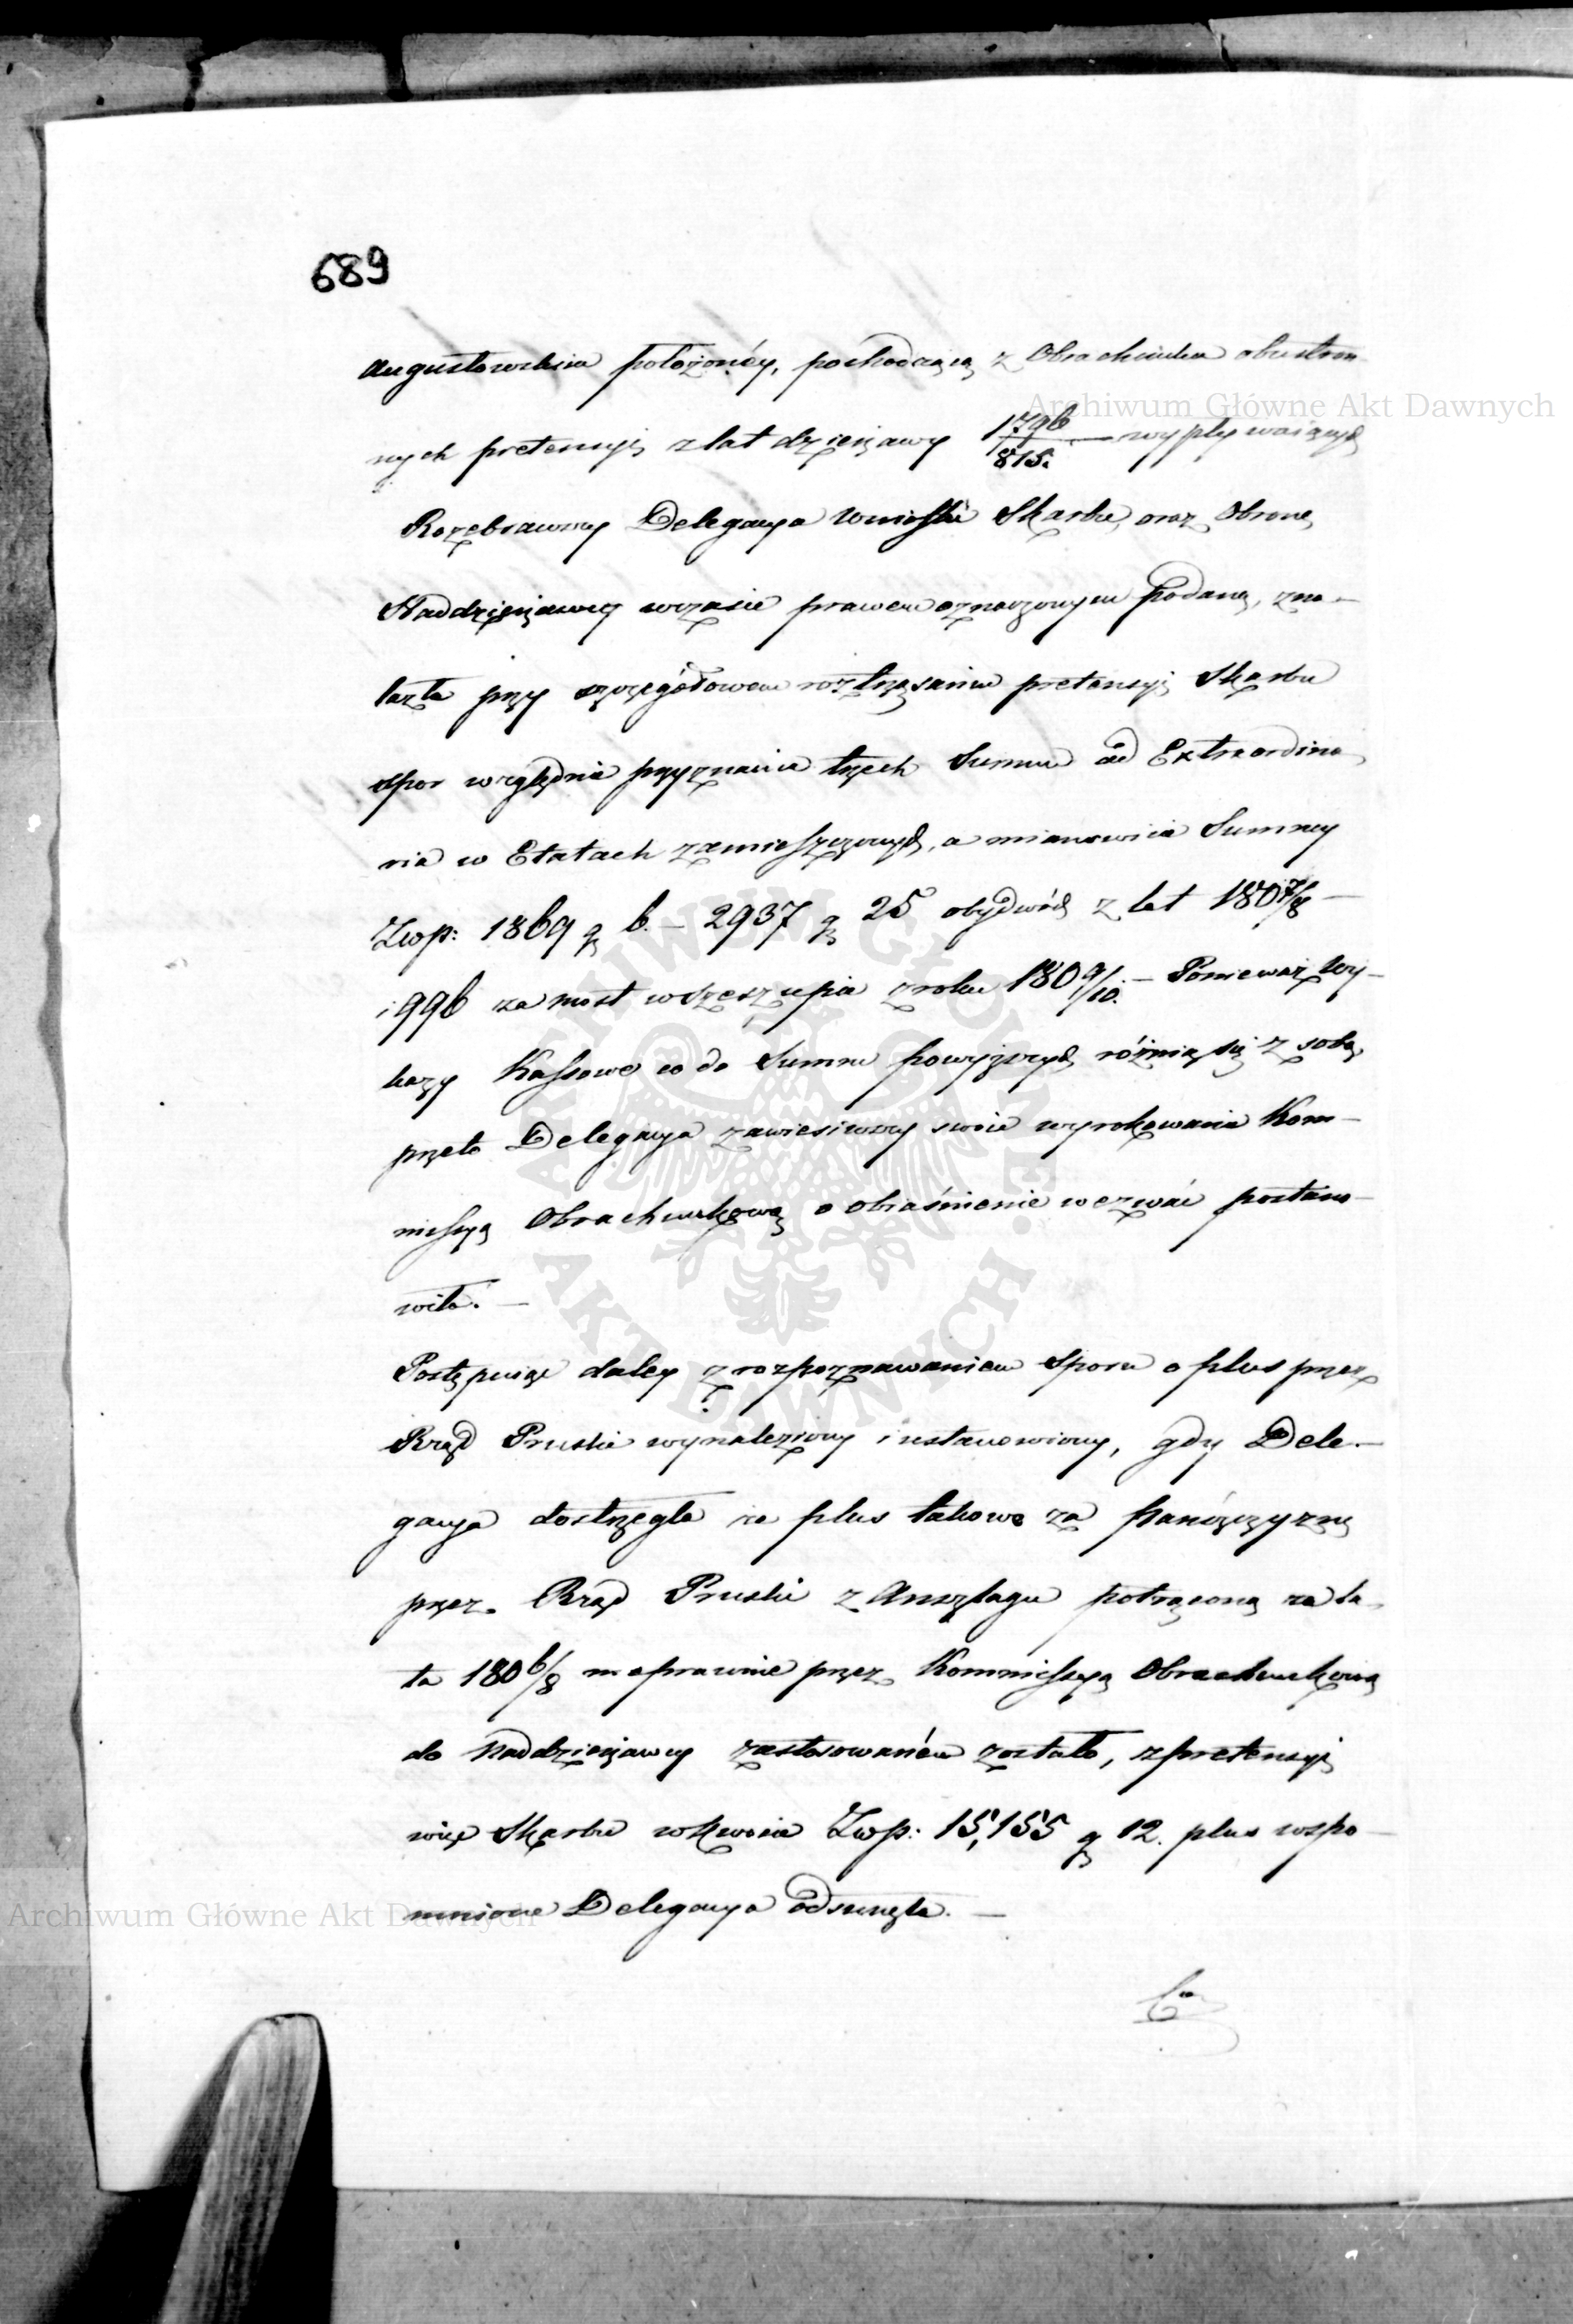 689
Augustowskie położonéy, pochodzącą z Obrachunku obustron
nych pretensyi z lat dzierżawy 1796/815. wypływaiących
Rozebrawszy Delegacya Wnioski Skarbu, oraz Obronę
Naddzierżawcy wczasie prawem oznaczonym podaną, zna—
lazła przy szczegółowem roztrząsaniu pretensyi Skarbu
spór względnie przyznania trzech Summ ad Extraordina
ria w Etatach zamieszczonych, a mianowicie Summy
Złłp: 1869 gr 6. — 2937 gr 25 obydwóch z lat 1807/8 —
i 996 za most w Szeszupie z roku 1809/10. — Ponieważ Wy—
kazy Kassowe co do Summ powyższych różnią się z sobą,
przeto Delegacya zawiesiwszy swoie wyrokowanie Kom—
missyą Obrachunkową o obiaśnienie wezwać postano—
wiła. —
Postępuiąc daley z rozpoznawaniem Sporu o plus przez
Rząd Pruski wynaleziony i ustanowiony, gdy Dele—
gacya dostrzegła że plus takowe za pańszczyznę
przez Rząd Pruski z Anszlagu potrąconą za la
ta 1806/8 nieprawnie przez Kommissyą Obrachunkową
do Naddzierżawcy zastosowaném zostało, z pretensyi
więc Skarbu w kwocie Złłp: 15,155 gr 12. plus wspo—
mnione Delegacya odsunęła. —
Co
Archiwum Główne Akt Dawnych
ARCHIWUM GŁÓWNE AKT DAWNYCH
Archiwum Główne Akt Dawnych